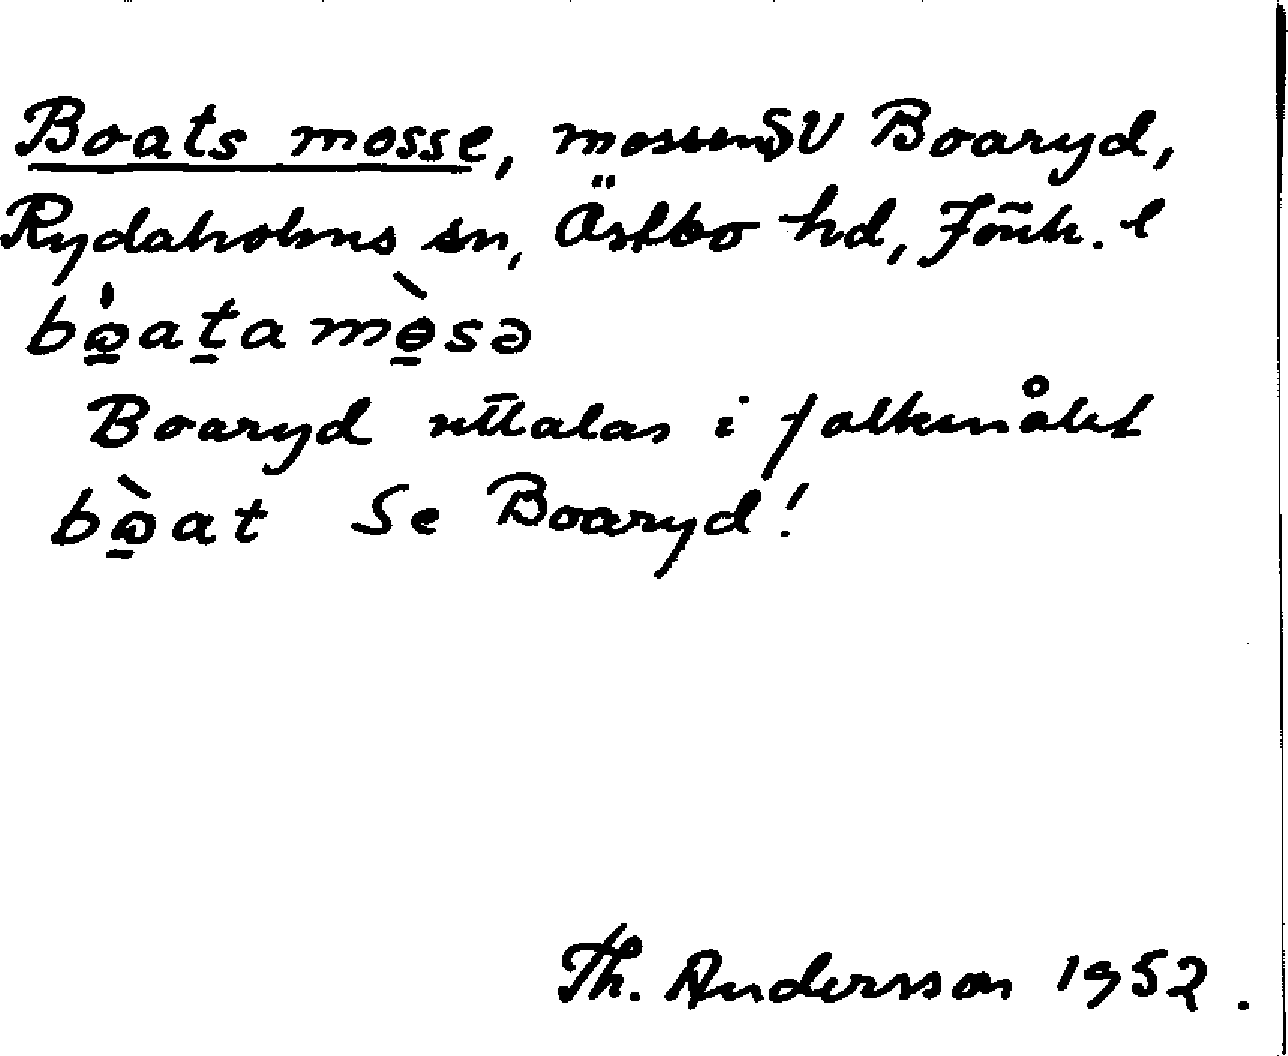 Boats mosse, mossen SV Boaryd,
Rydaholms sn, Östbo hd, Jönk. l
bώ̲at̲a mɵ̲̀sə
Boaryd uttalas i folkmålet
bὼ̲at Se Boaryd!
Th. Andersson 1952.